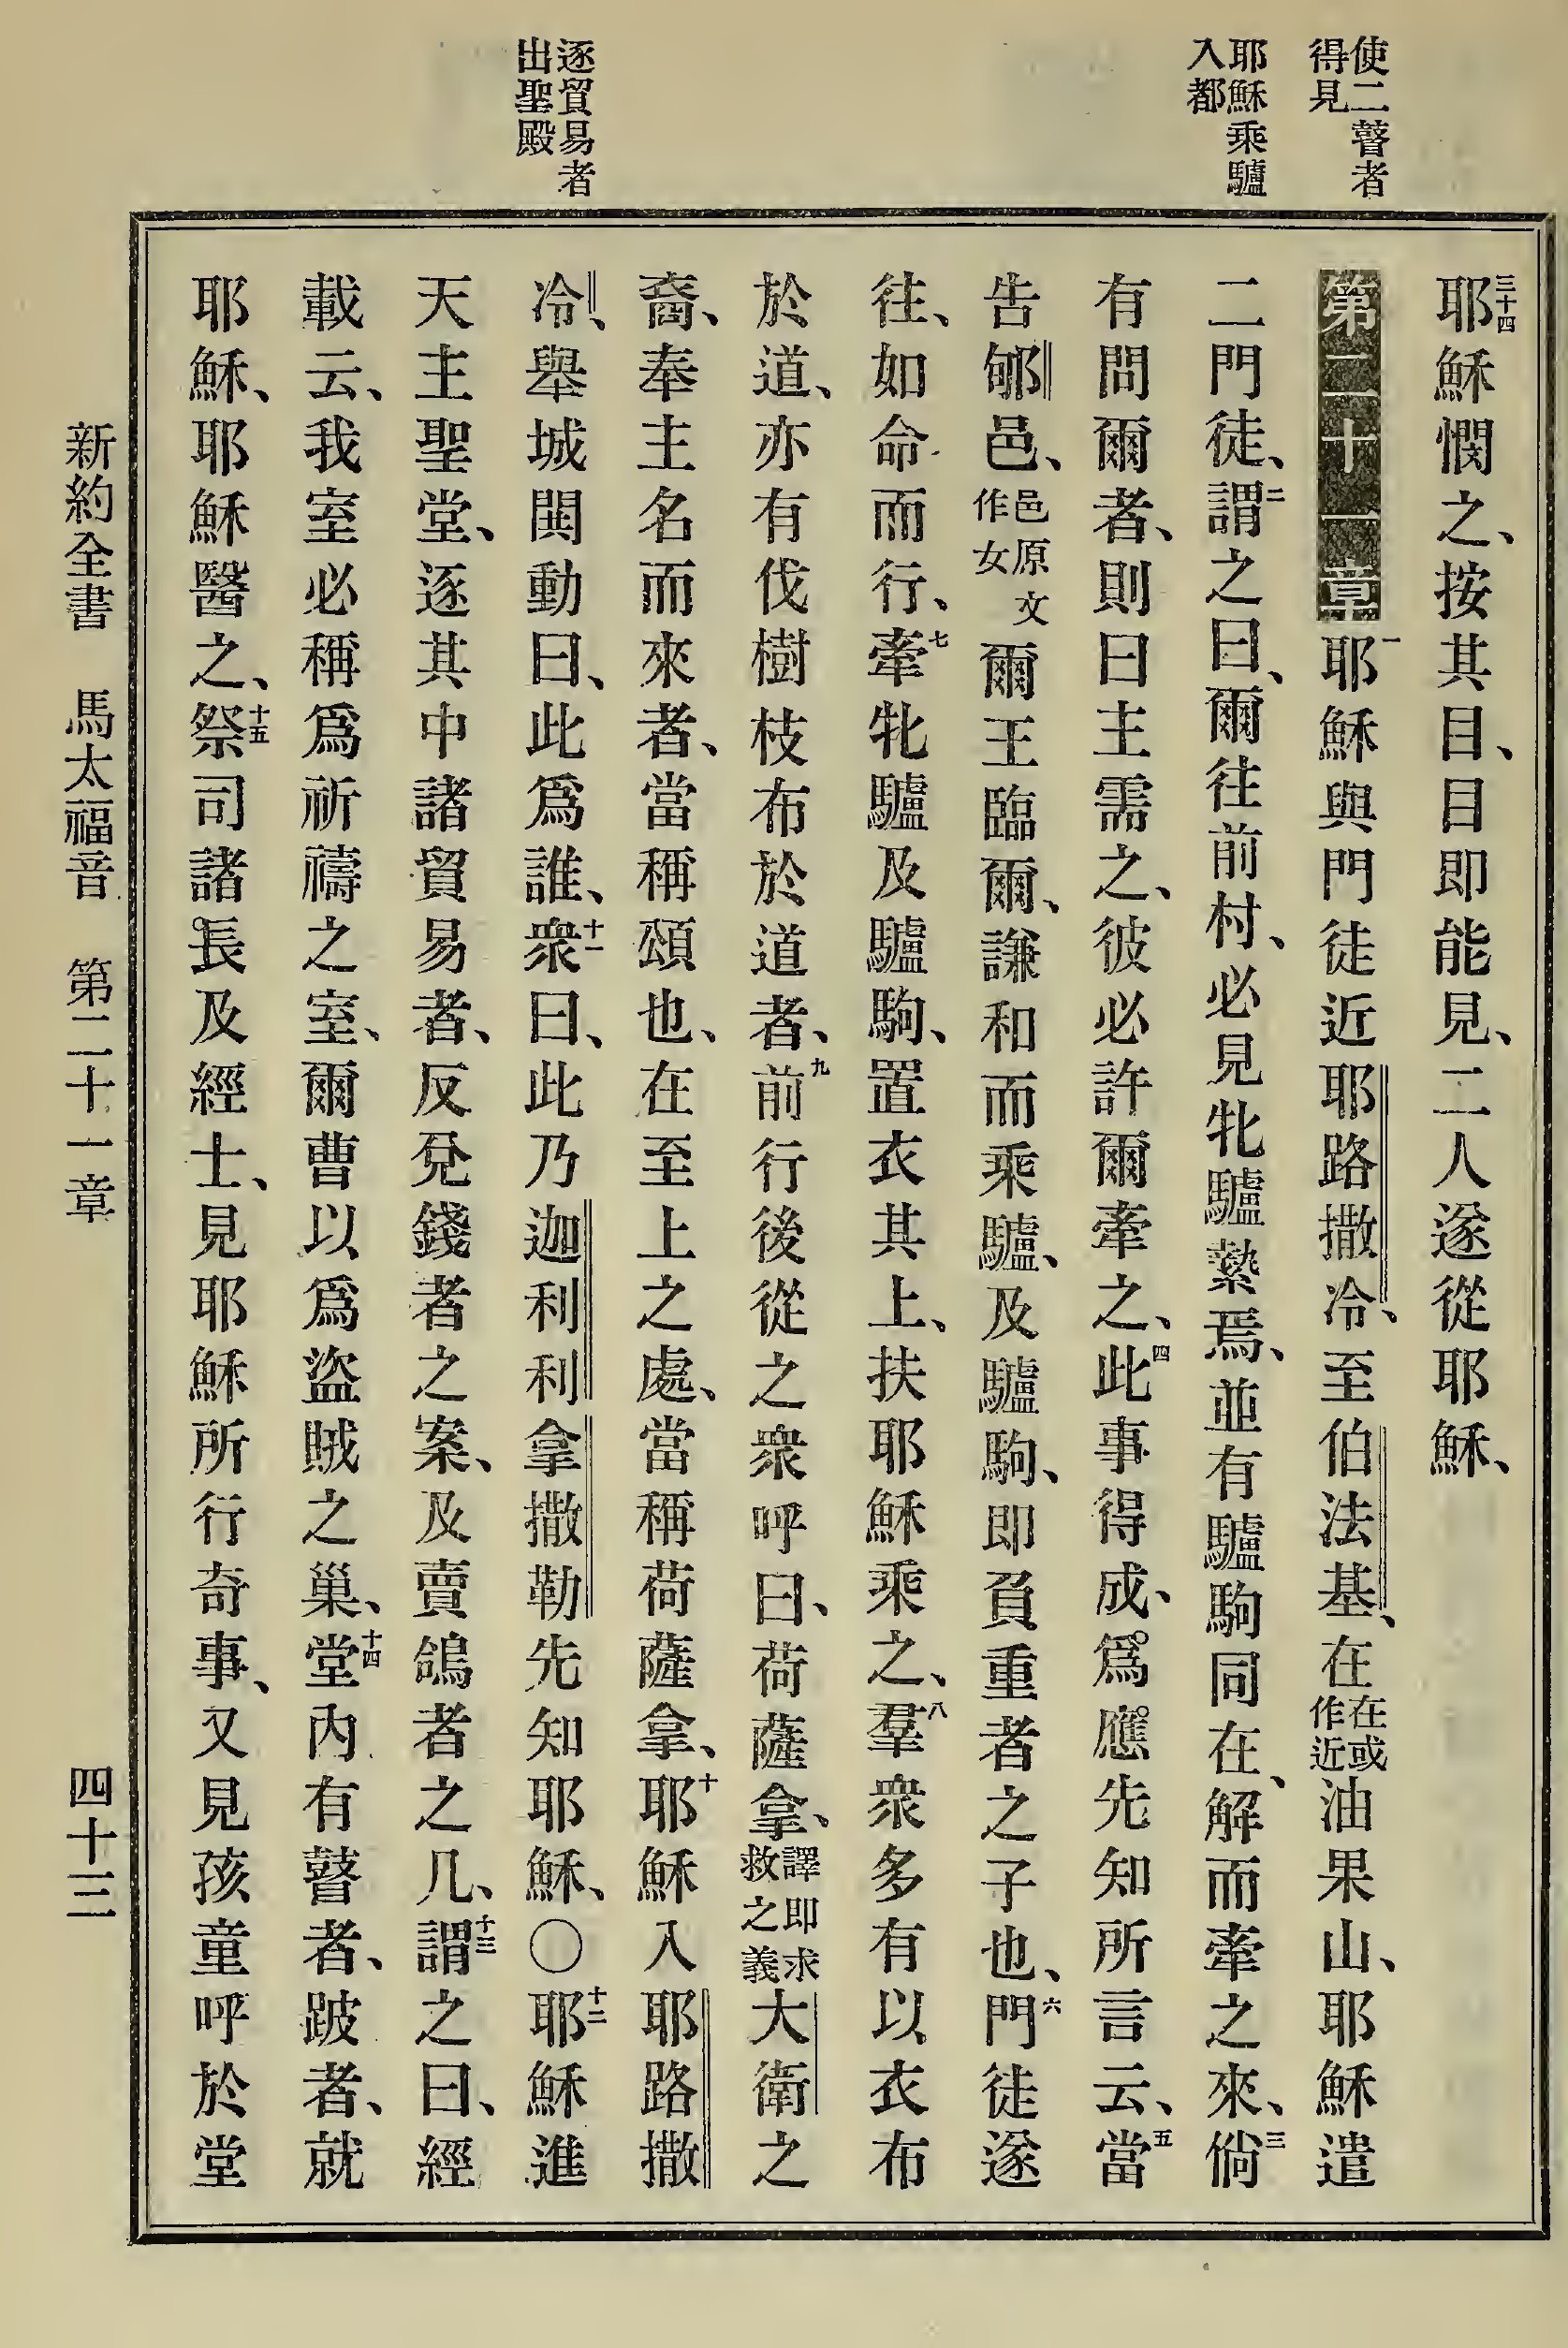 使二瞽者
得見
耶穌乘驢
入都
逐貿易者
出聖殿
三十四耶穌憫之、按其目、目即能見、二人遂從耶穌、
第二十一章一耶穌與門徒近耶路撒冷、至伯法基、在在或作近油果山、耶穌遣
二門徒、二謂之曰、爾往前村、必見牝驢縶焉、並有驢駒同在、解而牽之來、三倘
有問爾者、則曰主需之、彼必許爾牽之、四此事得成、爲應先知所言云、五當
告郇邑、邑原文作女爾王臨爾、謙和而乘驢、及驢駒、即負重者之子也、六門徒遂
往、如命而行、七牽牝驢及驢駒、置衣其上、扶耶穌乘之、八羣衆多有以衣布
於道、亦有伐樹枝布於道者、九前行後從之衆呼曰、荷薩拿、譯即求救之義大衛之
裔、奉主名而來者、當稱頌也、在至上之處、當稱荷薩拿、十耶穌入耶路撒
冷、舉城閧動曰、此爲誰、十一衆曰、此乃迦利利拿撒勒先知耶穌、〇十二耶穌進
天主聖堂、逐其中諸貿易者、反兌錢者之案、及賣鴿者之几、十三謂之曰、經
載云、我室必稱爲祈禱之室、爾曹以爲盜賊之巢、十四堂內有瞽者、跛者、就
耶穌、耶穌醫之、十五祭司諸長及經士、見耶穌所行奇事、又見孩童呼於堂
新約全書 馬太福音 第二十一章 四十三